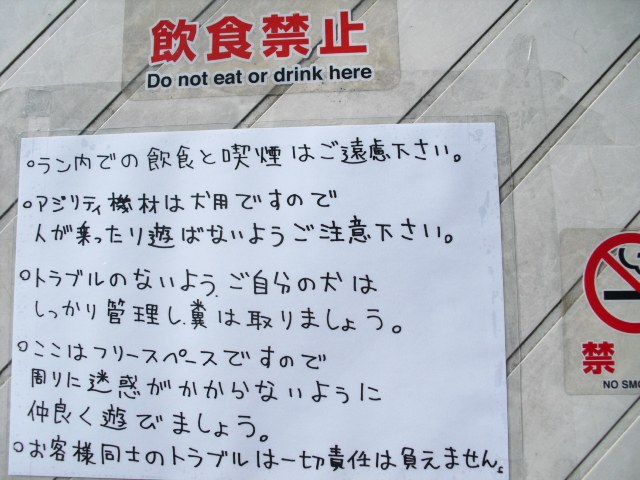 飲食禁止
Do not eat or drink here
○ラン内での飲食と喫煙はご遠慮下さい。
○アジリティ機材は犬用ですので
人が乗ったり遊ばないようご注意下さい。
○トラブルのないよう、ご自分の犬は
しっかり管理し、糞は取りましょう。
○ここはフリースペースですので
周りに迷惑がかからないように
仲良く遊びましょう。
○お客様同士のトラブルは一切責任は負えません。
禁
NO SMO